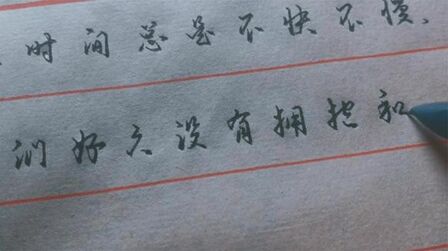 时间总是不快不慢,
们好久没有拥抱和